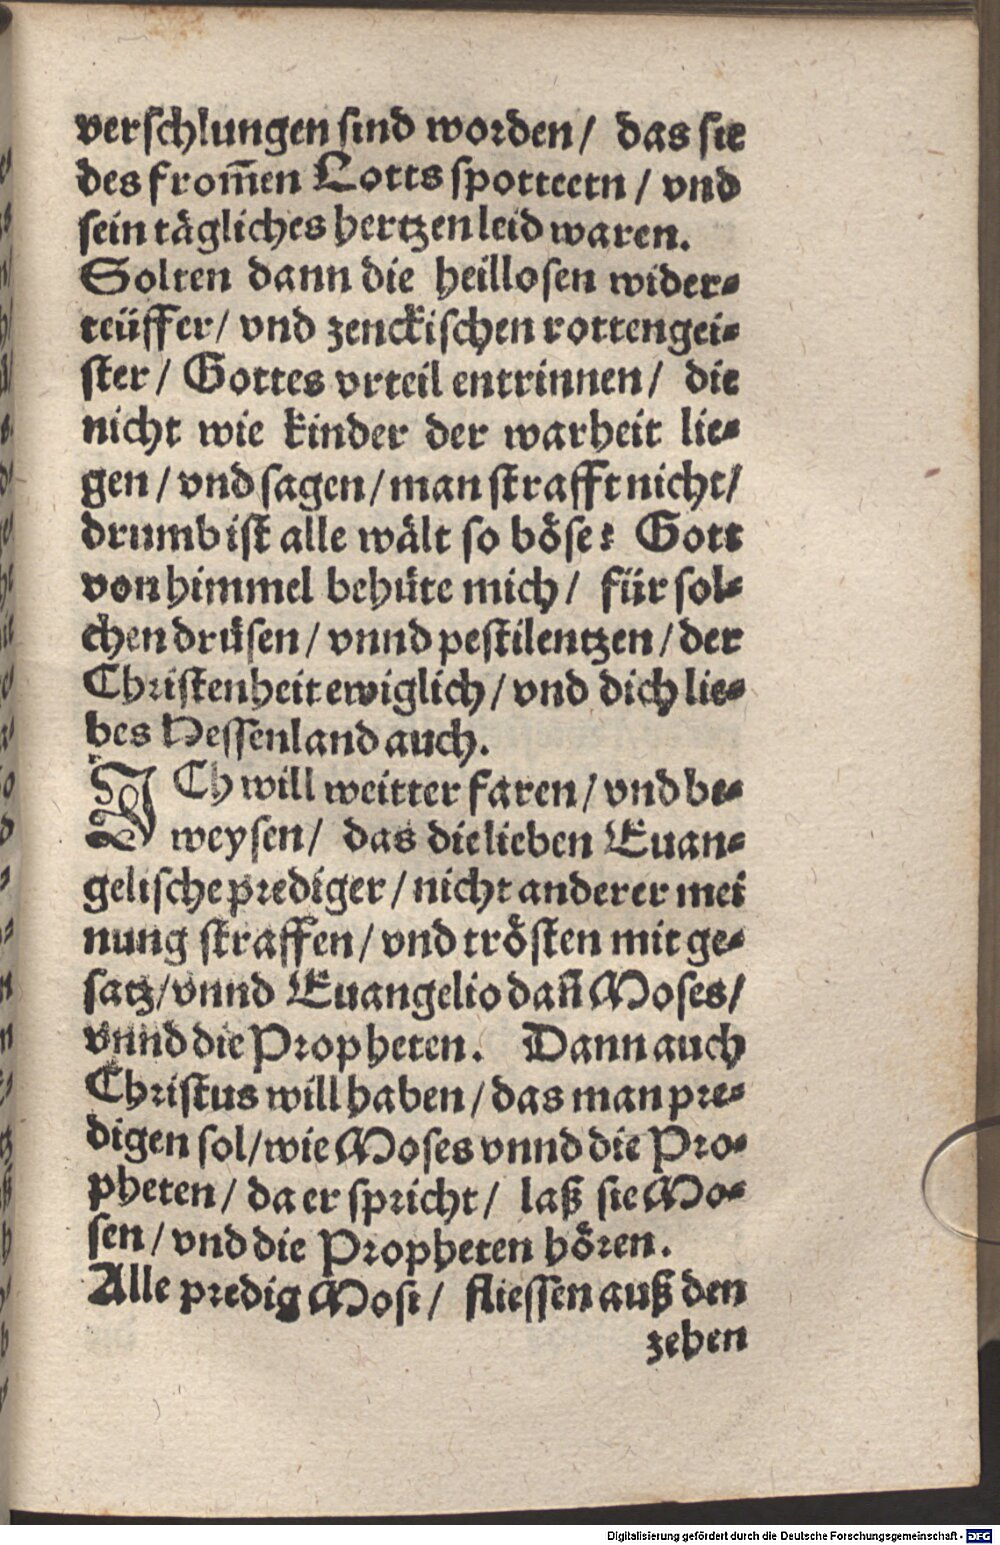 verschlungen sind worden / das sie
des from̃en Lotts spotteetn / vnd
sein tägliches hertzenleid waren.
Solten dann die heillosen wider⸗
teüffer / vnd zenckischen rottengei⸗
ster / Gottes vrteil entrinnen / die
nicht wie kinder der warheit lie⸗
gen / vnd sagen / man strafft nicht /
drumb ist alle wält so böse? Gott
von himmel behüte mich / für sol⸗
chen drüsen / vnnd pestilentzen / der
Christenheit ewiglich / vnd dich lie⸗
bes Hessenland auch.
ICh will weitter faren / vnd be⸗
weysen / das die lieben Euan⸗
gelische prediger / nicht anderer mei
nung straffen / vnd trösten mit ge⸗
satz / vnnd Euangelio dañ Moses /
vnnd die Propheten. Dann auch
Christus will haben / das man pre⸗
digen sol / wie Moses vnnd die Pro⸗
pheten / da er spricht / laß sie Mo⸗
sen / vnd die Propheten hören.
Alle predig Mosi / fliessen auß den
zehen
Digitalisierung gefördert durch die Deutsche Forschungsgemeinschaft - DFG